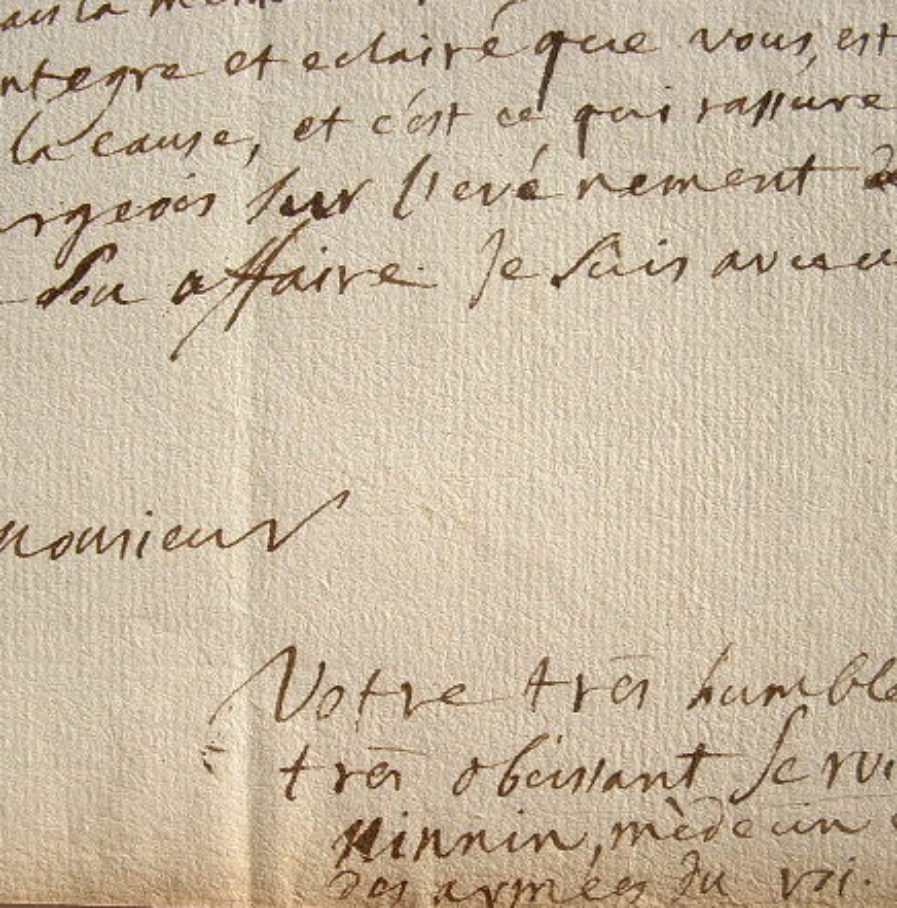 ntegre et eclairé que vous, est
la cause, et c'est ce qui rassure
urgeois sur l'evénement de
son affaire. Je suis avec u
monsieur
Votre très humble
très obeissant servi
Ninnin, mèdecin
des armées du roi.